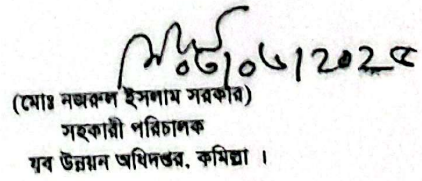 ০৩/০৬/2024
(মোঃ নজরুল ইসলাম সরকার)
সহকারী পরিচালক
যুব উন্নয়ন অধিদপ্তর, কুমিল্লা ।